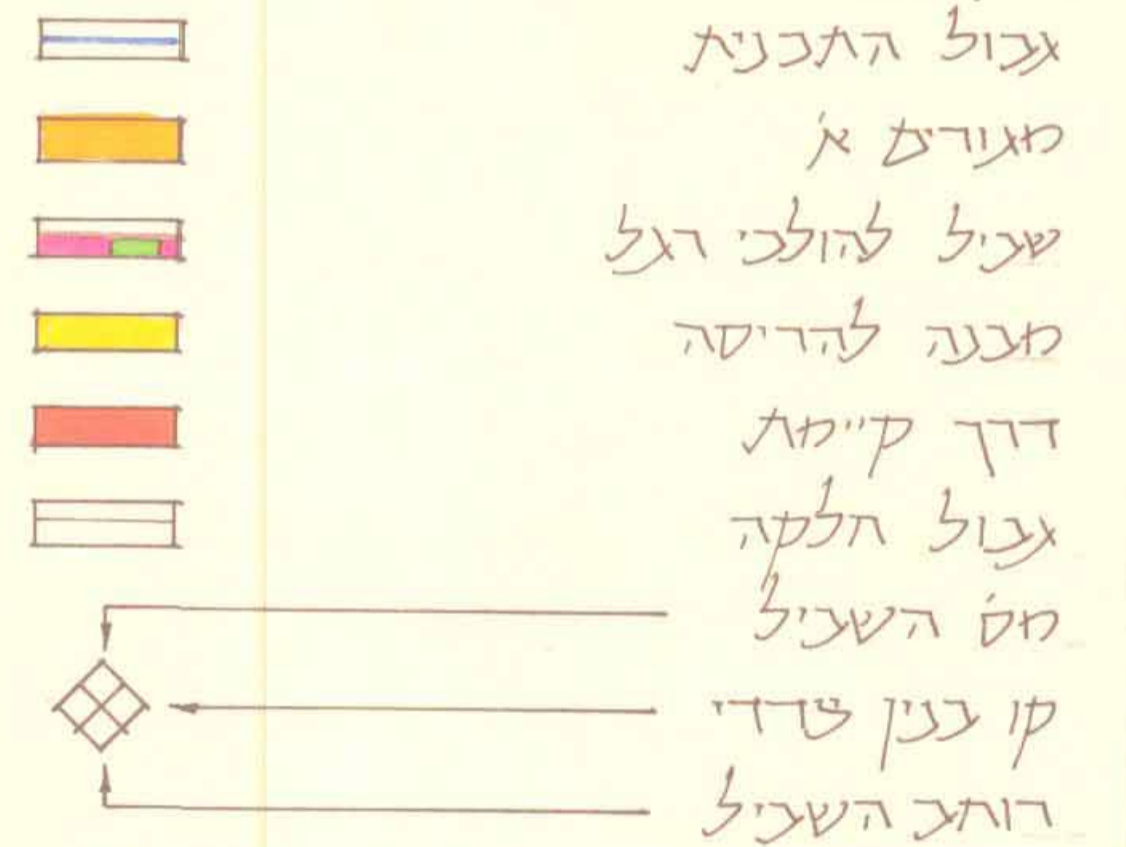 גבול התכנית
מגורים א'
שביל להולכי רגל
מבנה להריסה
דרך קיימת
גבול חלקה
מס' השביל
קו בנין צדדי
רוחב השביל